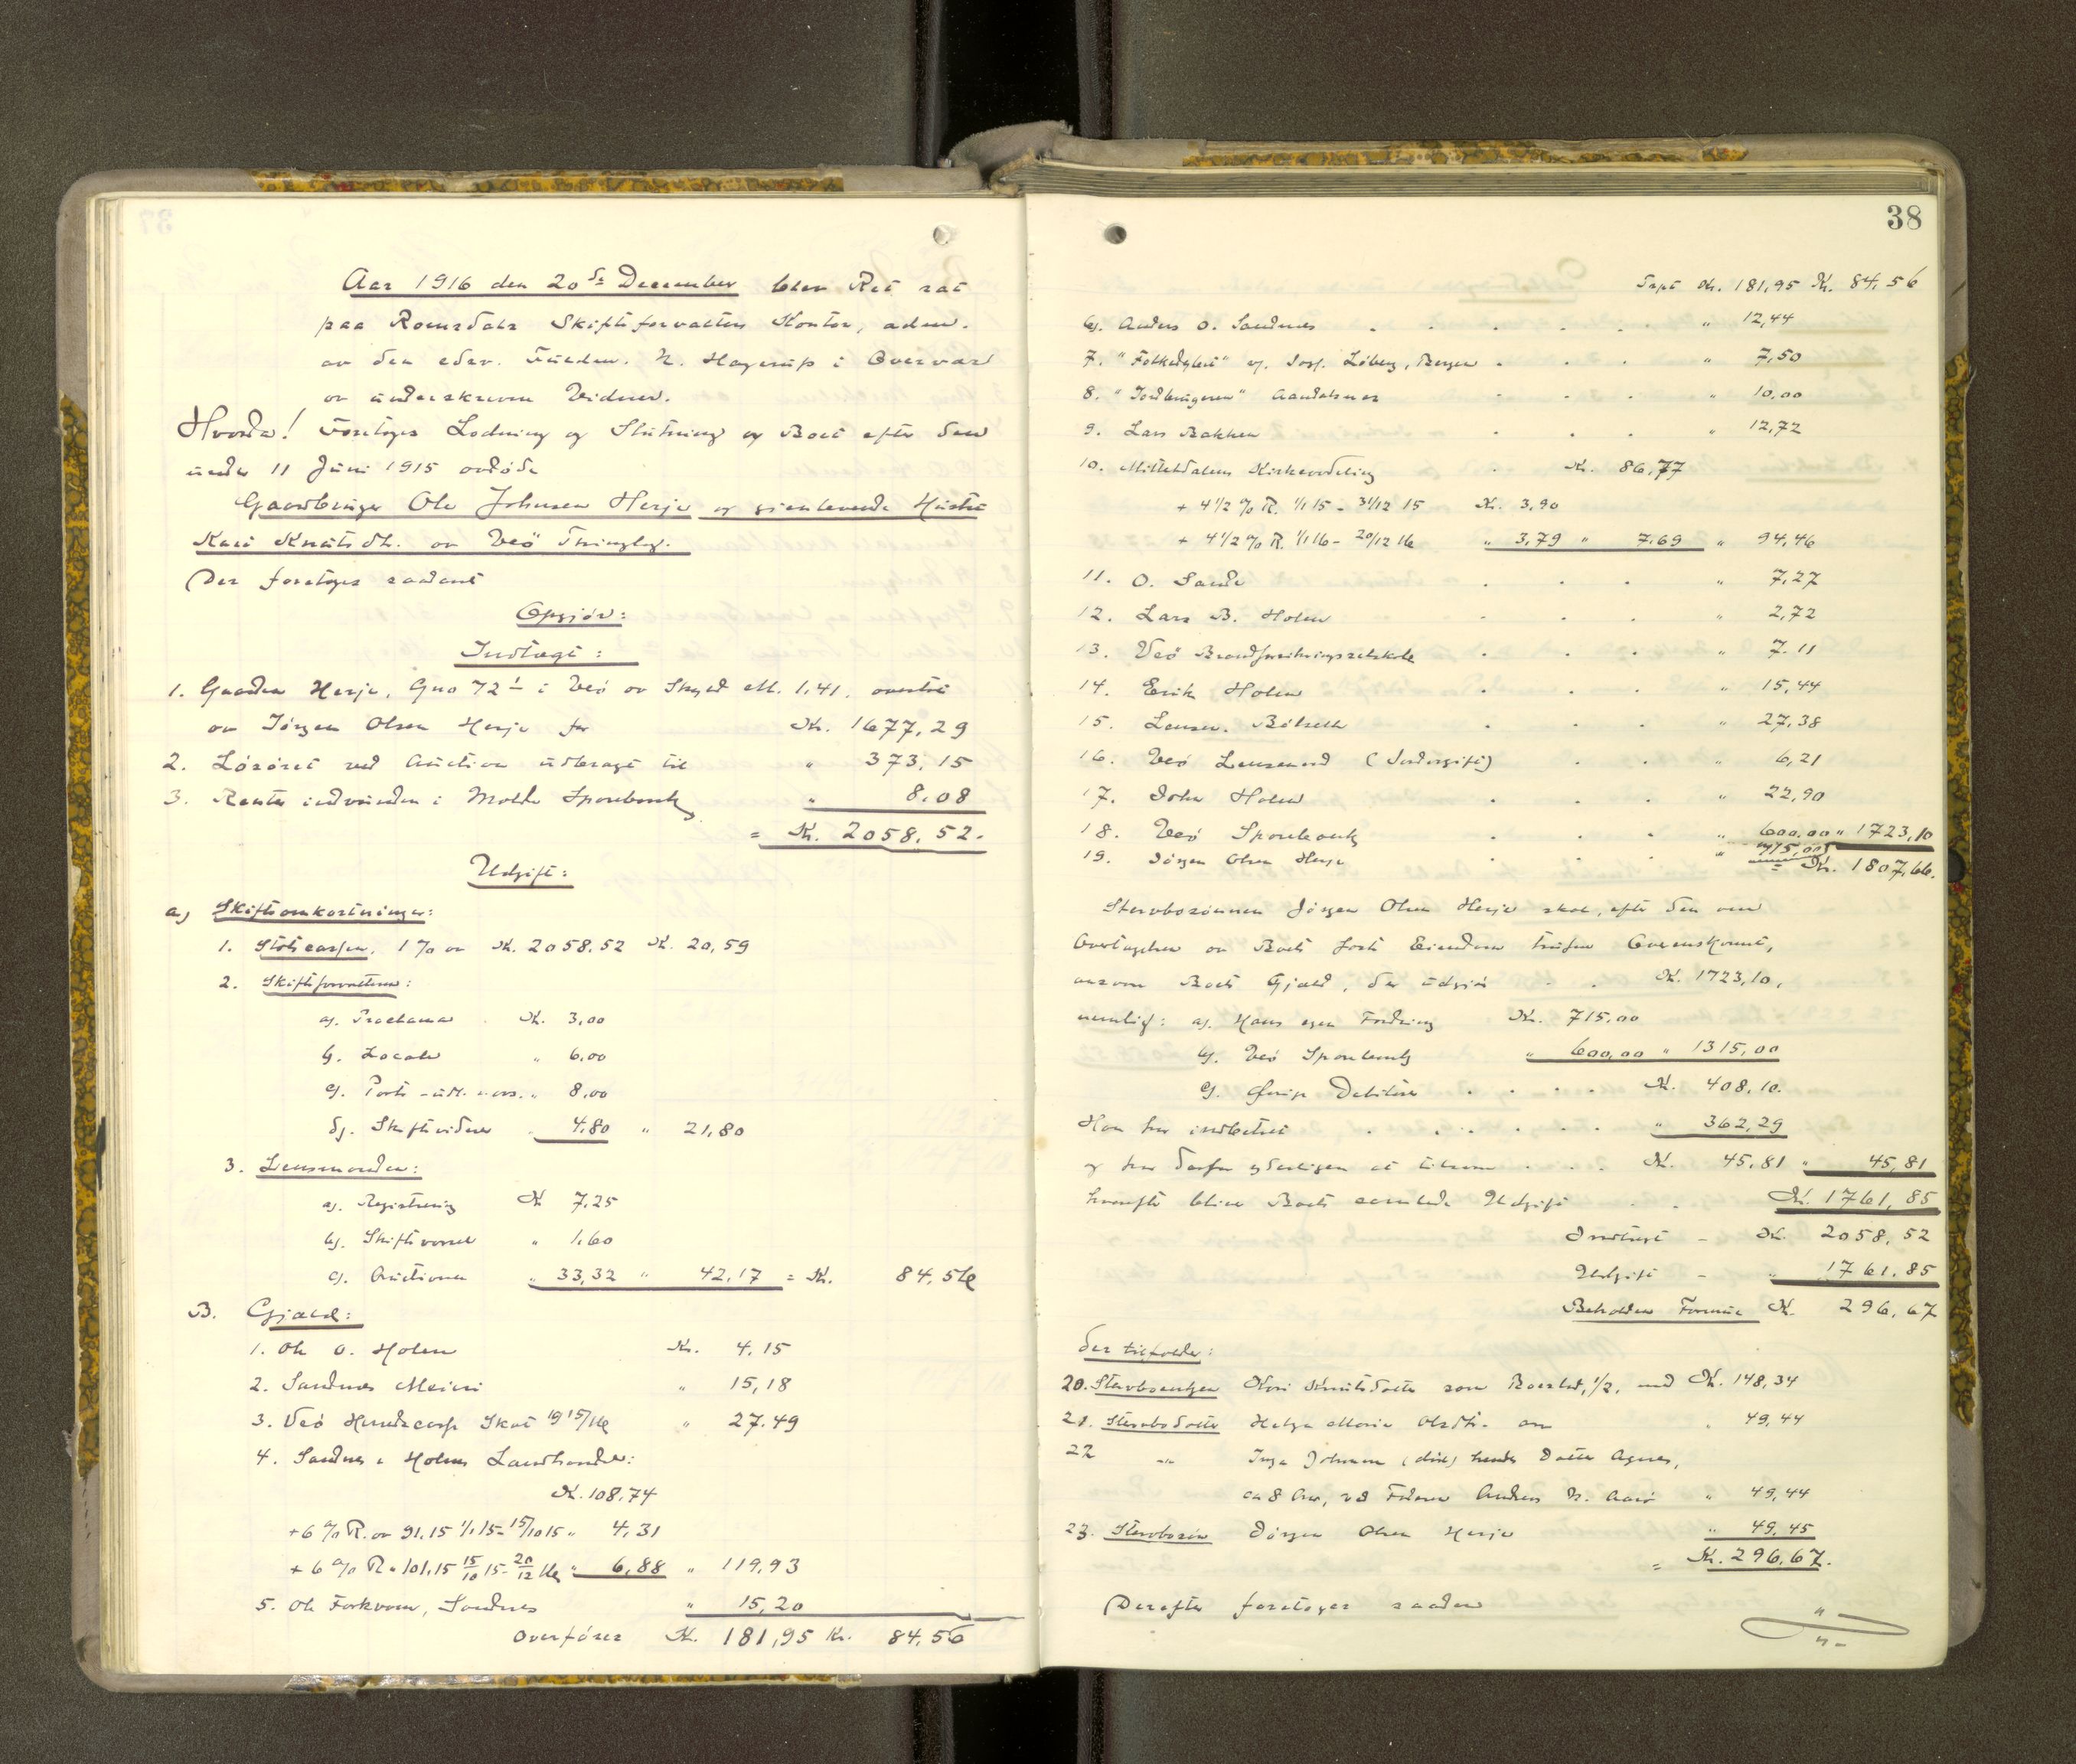 Aar 1916 den 20de December blev Ret sat
paa Romsdals Skifteforvalters Kontor, adm.
av den edsv. Fuldm. N. Hagerup i Overvær
av underskrevne Vidner.
Hvorda! Foretoges Lodning og Slutning og Boet efter den
under 11 Juni 1915 avdøde
Gaardbruger Ole Johnsen Herje og gjenlevende Hustru
Kari Knutsdt. av Veø Thinglag.
Der foretoges saadant
Opgjør:
Indtægt:
1. Gaarden Herje, Gno 72 1 i Veø av Skyld M. 1,41, overtat
av Jørgen Olsen Herje for Kr. 1677,29
2. Løsøret ved Auction udbragt til " 373,15
3. Renter indvunden i Molde Sparebank " 8,08
= Kr. 2058,52.
Udgift:
a) Skifteomkostninger:
1. Statscassen, 1 % av Kr. 2058.52 Kr. 20,59
2. Skifteforvalteren:
a). Proclama Kr. 3,00
b). Locale " 6,00
c). Porto - " 8,00
d). Skiftevidner " 4,80 " 21,80
3. Lensmanden:
a). Registrering Kr 7,25
b). Skiftevarsel " 1,60
c). Auctionen " 33,32 " 42,17 = Kr. 84,56
B. Gjæld:
1. Ole O. Holen Kr. 4,15
2. Sandnes Meieri " 15,18
3. Veø Herredscasse Skat 1915/16 " 27.49
4. Sandnes & Holms Landhandel:
Kr. 108,74
+ 6 % R. av 91,15 1/1 15 - 15/10 15 " 4,31
+ 6 % R " 101,15 15/10 15 - 20/12 16 " 6,88 " 119,93
5. Ole Forkvam, Sandnes " 15,20
Overføres Kr. 181,95 Kr. 84,56
38
Trpt Kr. 181,95 Kr. 84,56
6). Anders O. Sandnes " 12,44
7. "Folkebladet" v/. Løberg, Bergen " 7,50
8. "Jordbrugeren" Aandalsnes " 10,00
9. Lars Bakken " 12,72
10. Mittetdalens Kirkeavdeling Kr. 86,77
+ 4 1/2 % R. 1/1 15 - 31/12 15 Kr. 3,90
+ 4 1/2 % R. 1/1 16 - 20/12 16 " 3,79 " 7,69 " 94,46
11. O. Sande " 7,27
12. Lars B. Holen " 2,72
13. Veø Brandforsikringsselskab " 7.11
14. Erik Holen " 15,44
15. Lensm. Bolseth " 27,38
16. Veø Lensmand (Indergift) " 6,21
17. John Holen " 22,90
18. Veø Sparebank " 600,00 " 1723,10
19. Jørgen Olsen Herje " 715,00 = Kr. 1807,66.
Stervbosønnen Jørgen Olsen Herje skal, efter den ved
Overtagelsen av Boets faste Eiendom trufne Overenskomst,
ansvare Boets Gjæld, der udgjør Kr. 1723,10,
nemlig: a). Hans egen Fordring Kr. 715.00
b). Veø Sparebank " 600,00 " 1315,00
c). Øvrige Debitorer Kr. 408,10.
Han har indbetalt " 362,29
og har derfor yderligere at tilsvare Kr. 45,81 " 45,81
hvorefter bliver Boets samlede Udgift Kr. 1761,85
Indtægt - Kr. 2058,52
Udgift - " 1761.85
Beholden Formue Kr. 296,67
der tilfalder:
20. Stervboenken Kari Knutsdatter som Boeslod, 1/2, med Kr. 148,34
21. Stervbodatter Helga Marie Olsdt. " 49,44
22 -"- Inga Johnsen (død) hendes Datter Agnes,
ca 8 Aar, ved Faderen Anders N. " 49,44
23. Stervbosøn Jørgen Olsen Herje " 49,45
= Kr. 296,67.
Derefter foretoges saadan